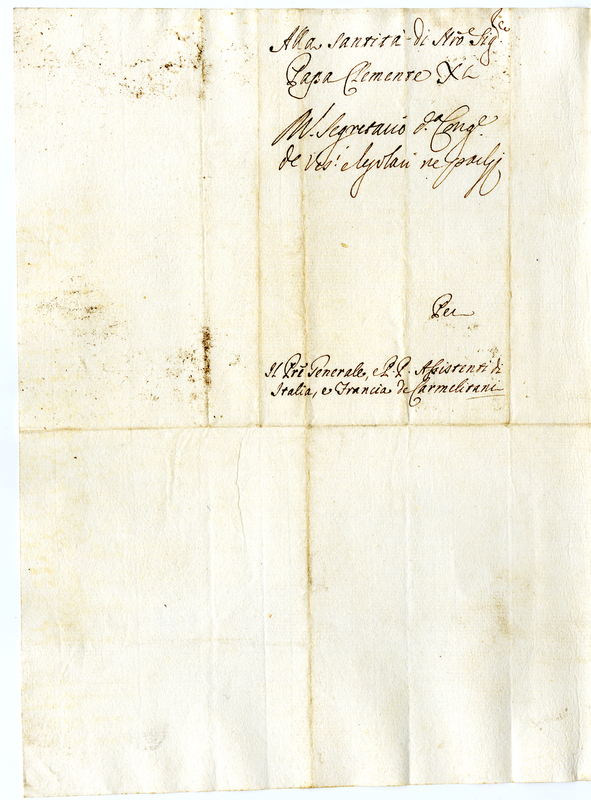 Alla Santità di Nro Sigre
Papa Clemente XI
M.r Segretario d.a Congne
de Ves.i e Regolari ne parli
Per
Il Pre Generale, e P.P. Assistenti di
Italia, e Francia de Carmelitani